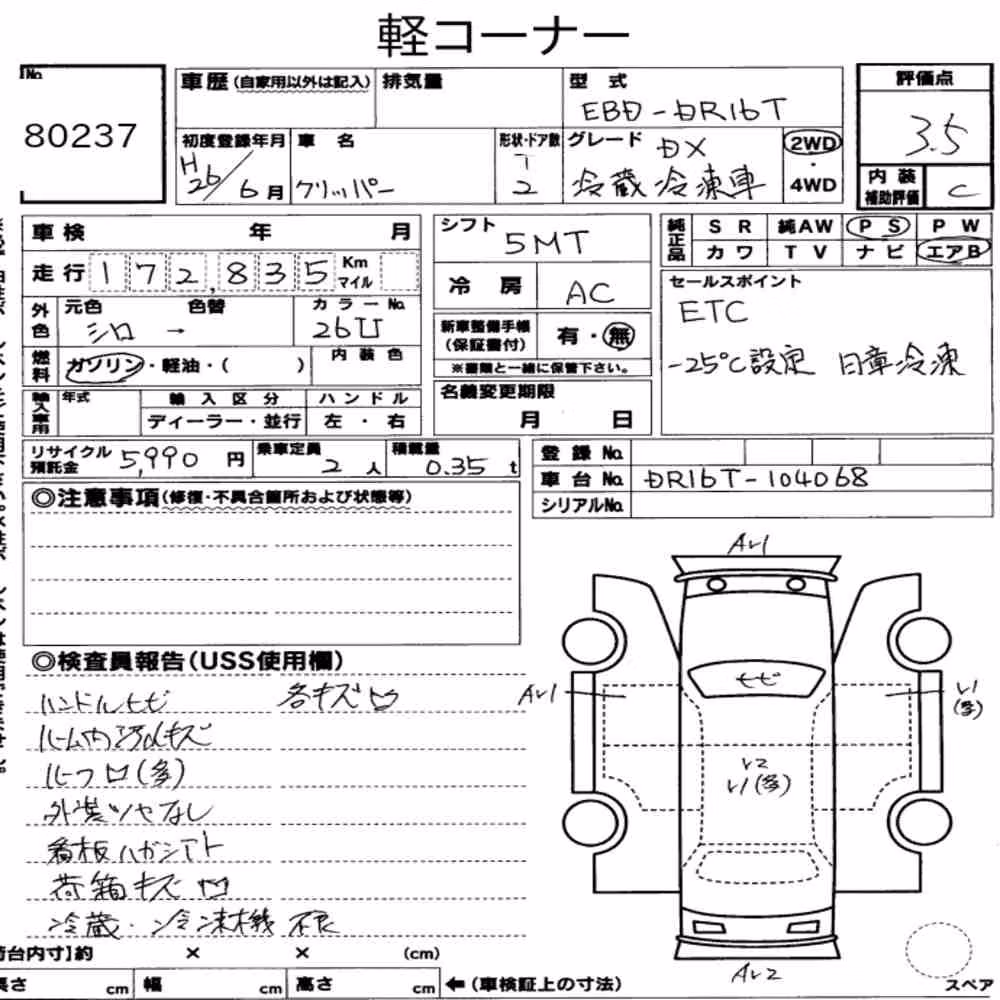 軽コーナー
No.
80237
車歴(自家用以外は記入)
排気量
型式
EBD-DR16T
評価点
3.5
初度登録年月
H26/6月
車名
クリッパー
形状・ドア数
T
2
グレード
DX
冷蔵冷凍車
2WD
・
4WD
内装
補助評価
C
車検 年 月
走行 172,835 Km
マイル
外色
元色 色替
シロ →
カラーNo.
26U
燃料
ガソリン・軽油・( )
内装色
輸入車用
年式
輸入区分
ディーラー・並行
ハンドル
左・右
シフト
5MT
冷房
AC
新車整備手帳
(保証書付)
有・無
※書類と一緒に保管下さい。
名義変更期限
月 日
純正品
SR 純AW PS PW
カワ TV ナビ エアB
セールスポイント
ETC
-25℃設定 日章冷凍
リサイクル
預託金
5,990円
乗車定員
2人
積載量
0.35t
登録No.
車台No. DR16T-104068
シリアルNo.
◎注意事項(修復・不具合箇所および状態等)
◎検査員報告(USS使用欄)
ハンドルヒビ 各キズ凹
ルーム内汚れキズ
ルーフ凹(多)
外装ツヤなし
看板ハガシアト
荷箱キズ凹
冷蔵・冷凍機不良
荷台内寸】約 × × (cm)
長さ cm 幅 cm 高さ cm ←(車検証上の寸法)
Aレ1
ヒビ
Aレ1
レ1
(多)
レ2
レ1(多)
Aレ2
スペア